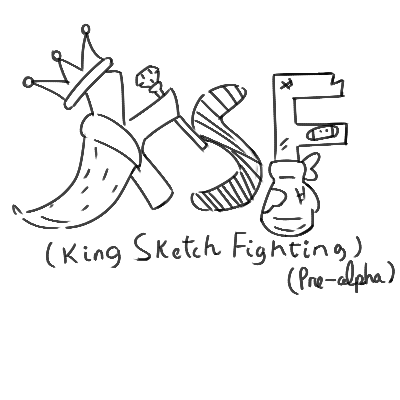 KSF
(King Sketch Fighting)
(Pre-alpha)